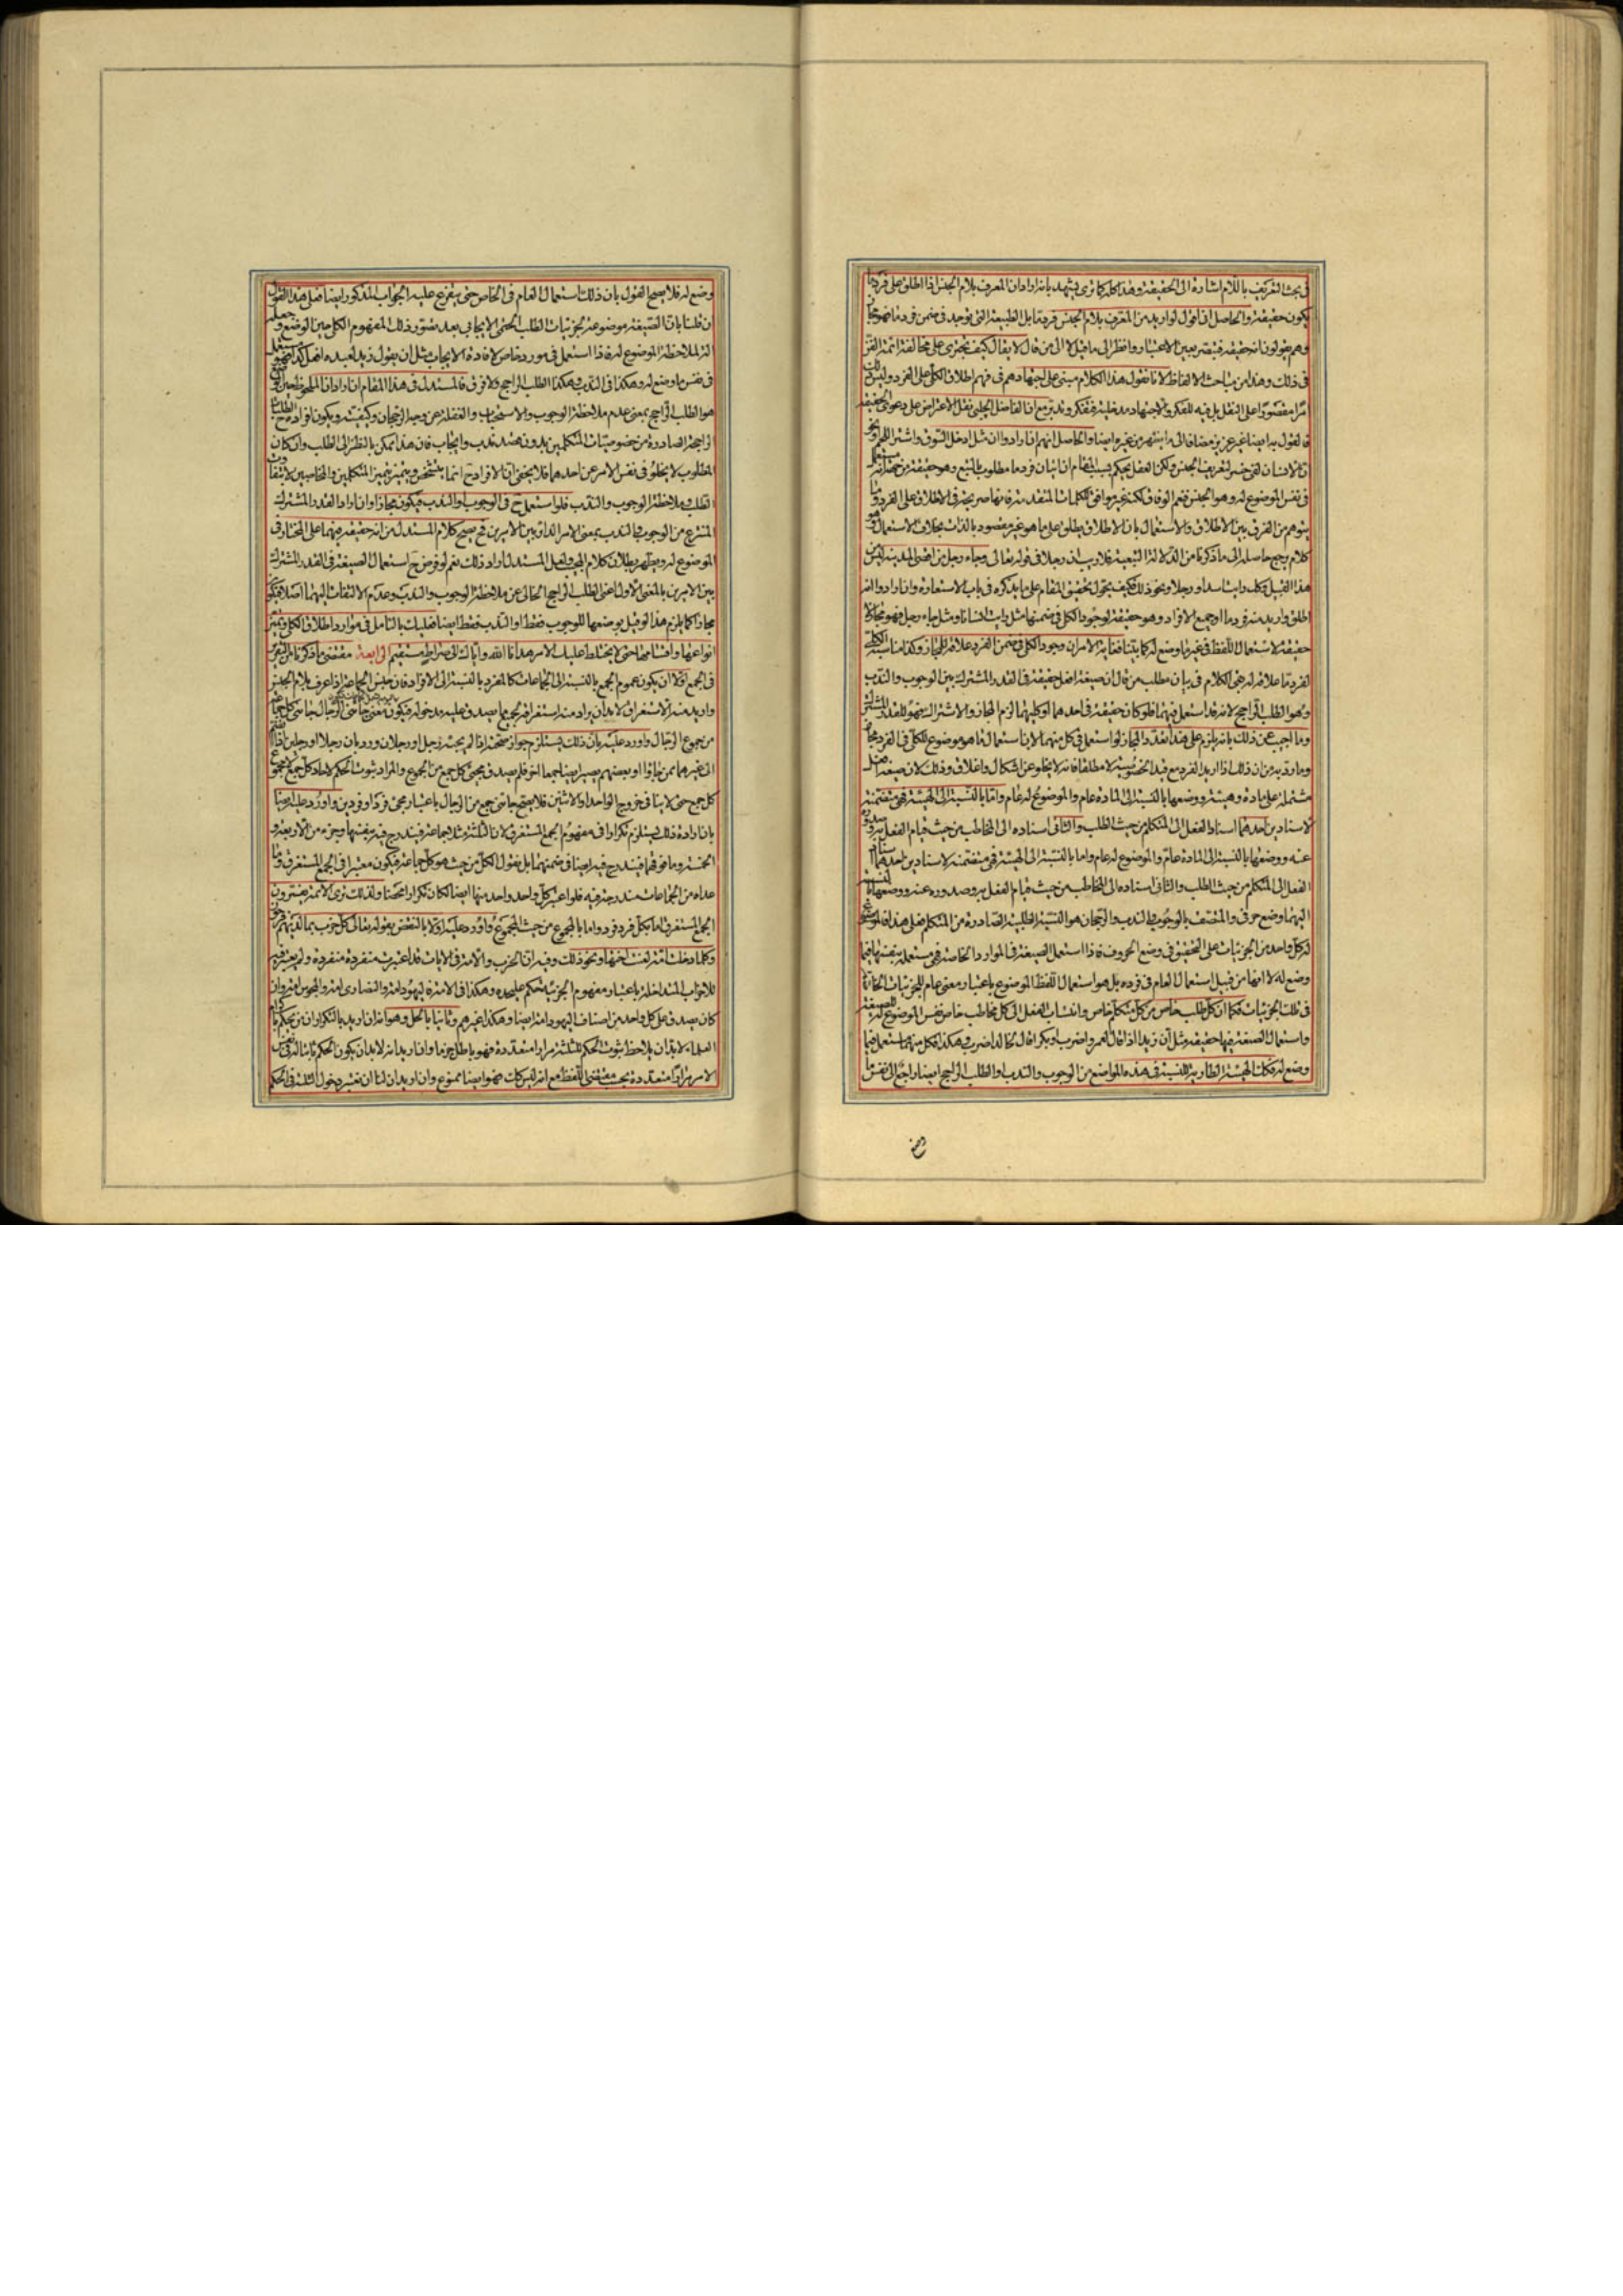 في بحث التعريف باللام اشارة الى الحقيقة وهذا كله كما ترى يشهد بانه ارادان المعرف بلام الجنس اذا اطلق على فرد ما
يكون حقيقة والحاصل اني اقول لو اريد من المعرف بلام الجنس فرد ما بل الطبيعة التي توجد في ضمن فرد ما فهو مجاز
وهم يقولون انه حقيقة فتبصر بعين الاعتبار وانظر الى ما قيل لا الى من قال لا يقال كيف تجترى على مخالفة ائمة الفن
في ذلك وهذا من مباحث الالفاظ لانا نقول هذا الكلام مبنى على اجتهادهم في فهم اطلاق الكلي على الفرد وليس ذلك
امرا مقصورا على النقل بل فيه للفكر والاجتهاد مدخلية فتفكر وتدبر مع ان الفاضل الجلبي نقل الاعتراض على دعوى الحقيقة
فالقول به ايضا غير عزيز مضافا الى ما اشتهر من غيره ايضا والحاصل انهم ان ارادوا ان مثل ادخل السوق واشتر اللحم
في نفس الموضوع له وهو الجنس فنعم الوفاق لكنه غير موافق لكلمات المتقدمة فانها صريحة في الاطلاق على الفرد وما
يتوهم من الفرق بين الاطلاق والاستعمال بان الاطلاق يطلق على ما هو غير مقصود بالذات بخلاف الاستعمال فهو
كلام يرجع حاصله الى ما ذكرنا من الدلالة التبعية فلا ريب ان رجلا في قوله تعالى وجاء رجل من اقصى المدينة ليس من
هذا القبيل وكذا رايت اسدا ورجلا ونحو ذلك فكيف يجوز تحقيق المقام على ما يذكره في باب الاستعارة وان ارادوا انه
اطلق واريد منه فرد ما او جميع الافراد وهو حقيقة لوجود الكلي في ضمنها مثل رايت انسانا ومثل جاء رجل فهو مجاز لا
حقيقة لاستعمال اللفظ في غير ما وضع له كما بينا فغاية الامر ان وجود الكلي في ضمن الفرد علاقة للمجاز وكذا مناسبة الكلي
لفرد ما علاقة له بقى الكلام في بيان مطلب من قال ان صيغة افعل حقيقة في القدر المشترك بين الوجوب والندب
وهو الطلب الراجح لانه قد استعمل فيهما فلو كان حقيقة في احدهما او كليهما لزم المجاز والاشتراك فهو للقدر المشترك
وما اجيب عن ذلك بانه يلزم على هذا تعدد المجاز لو استعمل في كل منهما لان استعمال ما هو موضوع للكلي في الفرد مجاز
وما رد به من ان ذلك اذا اريد الفرد مع قيد الخصوصية لا مطلقا فانه لا يخلو عن اشكال واغلاق وذلك لان صيغة افعل
مشتملة على مادة وهيئة ووضعها بالنسبة الى المادة عام والموضوع له عام واما بالنسبة الى الهيئة فهي متضمنة
لاسنادين احدهما اسناد الفعل الى المتكلم من حيث الطلب والثاني اسناده الى المخاطب من حيث قيام الفعل به وصدوره
عنه ووضعها بالنسبة الى المادة عام والموضوع له عام واما بالنسبة الى الهيئة فهي متضمنة لاسنادين احدهما اسناد
الفعل الى المتكلم من حيث الطلب والثاني اسناده الى المخاطب من حيث قيام الفعل به وصدوره عنه ووضعها بالنسبة
اليهما وضع حرفي والمتصف بالوجوب والندب والرجحان هو النسبة الطلبية الصادرة من المتكلم فعلى هذا فالموضوع
له كل واحد من الجزئيات على التحقيق في وضع الحروف فاذا استعمل الصيغة في الموارد الخاصة فهي مستعملة بنفسها فيما
وضع له لا انها من قبيل استعمال العام في فرده بل هو استعمال للفظ الموضوع باعتبار معنى عام للجزئيات الخاصة
في تلك الجزئيات فكما ان كل طلب خاص من كل متكلم خاص وانتساب الفعل الى كل مخاطب خاص نفس الموضوع له للصيغة
واستعمال الصيغة فيها حقيقة مثل ان زيدا اذا قال لعمرو اضرب وبكرا قال لخالد اضرب وهكذا فكل منهما مستعمل فيما
وضع له فكذلك الهيئة الطارية للنسبة في هذه المواضع من الوجوب والندب او الطلب الراجح ايضا راجع الى نفس ما
وضع
وضع له فلا يصح القول بان ذلك استعمال العام في الخاص حتى يتفرع عليه الجواب المذكور ايضا فعلى هذا القول
ان قلنا بان الصيغة موضوعة لجزئيات الطلب الحتمى الايجابى بعد تصور ذلك المفهوم الكلي حين الوضع وجعله
الة لملاحظة الموضوع له فاذا استعمل في مورد خاص لافادة الايجاب مثل ان يقول زيد لعبده افعل كذا فهو مستعمل
في نفس ما وضع له وهكذا في الندب وهكذا الطلب الراجح ولا فرق فالمستدل في هذا المقام ان ارادان الملحوظ حين الوضع
هو الطلب الراجح بمعنى عدم ملاحظة الوجوب والاستحباب والغفلة عن وجه الرجحان وكيفيته ويكون افراده ح الطلبات
الراجحة الصادرة من خصوصيات المتكلمين بدون قصد ندب وايجاب فان هذا ممكن بالنظر الى الطلب وان كان
المطلوب لا يخلو في نفس الامر عن احدهما فلا يخفى ان الافراد ح انما يتشخص ويتميز بتميز المتكلمين والمخاطبين لا بتفاوت
الطلب وملاحظة الوجوب والندب فلو استعمل ح في الوجوب او الندب فيكون مجازا وان اراد القدر المشترك
المنتزع من الوجوب والندب بمعنى الامر الدائر بين الامرين فح يصح كلام المستدل من انه حقيقة فيهما على المختار في
الموضوع له ويظهر بطلان كلام المجيب ولعل المستدل اراد ذلك نعم لو فرض ح استعمال الصيغة في القدر المشترك
بين الامرين بالمعنى الاول اعنى الطلب الراجح الخالى عن ملاحظة الوجوب والندب وعدم الالتفات اليهما اصلا فيكون
مجازا كما يلزم هذا لو قيل بوضعها للوجوب فقط او الندب فقط ايضا فعليك بالتامل في موارد اطلاق الكلي وتميز
انواعها واقسامها حتى لا يختلط عليك الامر هدانا الله واياك الى صراط مستقيم الرابعة مقتضى ما ذكرنا من التقرير
في الجمع اولا ان يكون عموم الجمع بالنسبة الى الجماعات كالمفرد بالنسبة الى الافراد فان جنس الجماعة اذا عرف بلام الجنس
واريد منه الاستغراق لابد ان يراد منه استغراق مجموع ما يصدق عليه مدخوله فيكون معنى جائني الرجال جائني كل جماعة
من جموع الرجال واورد عليه بان ذلك يستلزم جواز صحته اذا لم يجئه رجل او رجلان ورد بان رجلا او رجلين اذا انضم
الى غيرهما ممن جاؤا او بعضهم يصير ايضا جمعا اخر فلم يصدق مجئ كل جمع من الجموع والمراد ثبوت الحكم لاحاد كل جمع لا مجموع
كل جمع حتى لا ينافي خروج الواحد او الاثنين فلا يصح جائني جمع من الرجال باعتبار مجئ فرد او فردين واورد عليه ايضا
بان ارادة ذلك يستلزم تكرارا في مفهوم الجمع المستغرق لان الثلثة مثلا جماعة فيندرج فيه بنفسها وجزء من الاربعة و
الخمسة وما فوقها فيندرج فيه ايضا في ضمنهما بل نقول الكل من حيث هو كل جماعة فيكون معتبرا في الجمع المستغرق وما
عداه من الجماعات مندرجة فيه فلو اعتبر كل واحد واحد منها ايضا لكان تكرارا محضا ولذلك ترى الائمة يفسرون
الجمع المستغرق اما بكل فرد فرد واما بالمجموع من حيث المجموع واورد عليه اولا بالنقض بقوله تعالى كل حزب بما لديهم فرحون
وكلما دخلت امة لعنت اختها ونحو ذلك وفيه ان الحزب والامة في الايات قد اعتبرت منفردة منفردة ولم يعتبر فيه
كان يصدق على كل واحد من اصناف اليهود امة ايضا وهكذا غيرهم وثانيا بالحل وهو انه ان اريد بالتكرار ان
العلماء لابد ان يلاحظ ثبوت الحكم للثلثة مرارا متعددة فهو باطل جزما وان اريد انه لابد ان يكون الحكم ثابتا له في نفس
الامر مرارا متعددة بحسب مقتضى اللفظ مع انه ليس كك فهو ايضا ممنوع وان اريد ان لنا ان نعتبر دخول الثلثة في الحكم